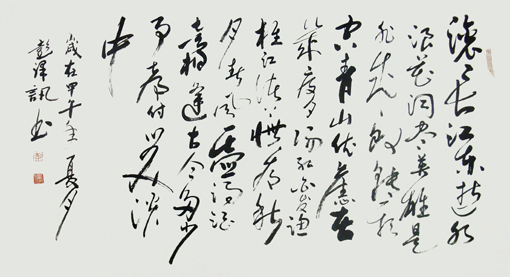 滚々长江东逝水
浪花淘尽英雄是
非成败转头
空青山依舊在
几度夕阳红白发渔
樵江渚上惯看秋
月春风一壶浊酒
喜相逢古今多少
事都付笑谈
中
歲在甲午年夏月
彭泽訊书